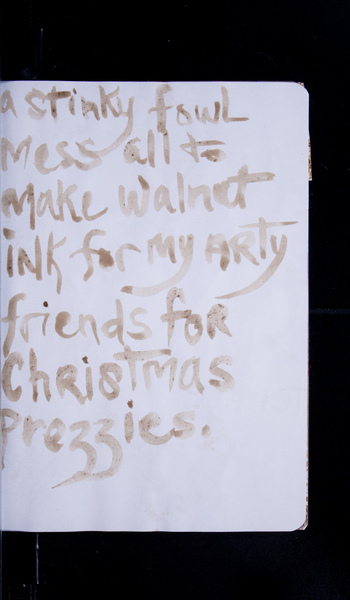 a stinky fowl
mess all to
make walnut
ink for my ARTY
friends foR
ChRisTmas
prezzies.